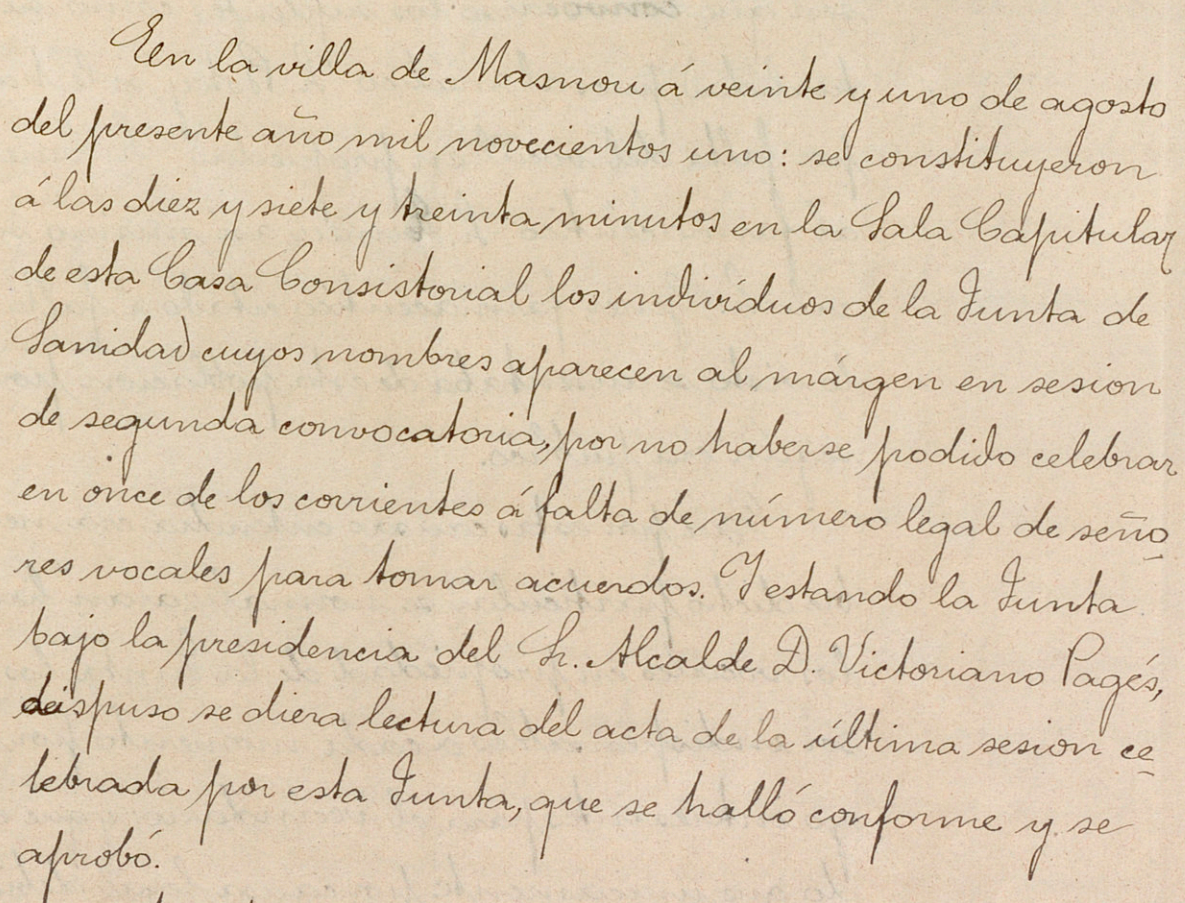 En la villa de Masnou á veinte y uno de agosto
del presente año mil novecientos uno: se constituyeron
á las diez y siete y treinta minutos en la Sala Capitular
de esta Casa Consistorial los indivíduos de la Junta de
Sanidad cuyos nombres aparecen al márgen en sesion
de segunda convocatoria, por no haberse podido celebrar
en once de los corrientes á falta de número legal de seño-
res vocales para tomar acuerdos. Y estando la Junta
bajo la presidencia del Sr. Alcalde D. Victoriano Pagés,
dispuso se diera lectura del acta de la última sesion ce-
lebrada por esta Junta, que se halló conforme y se
aprobó.